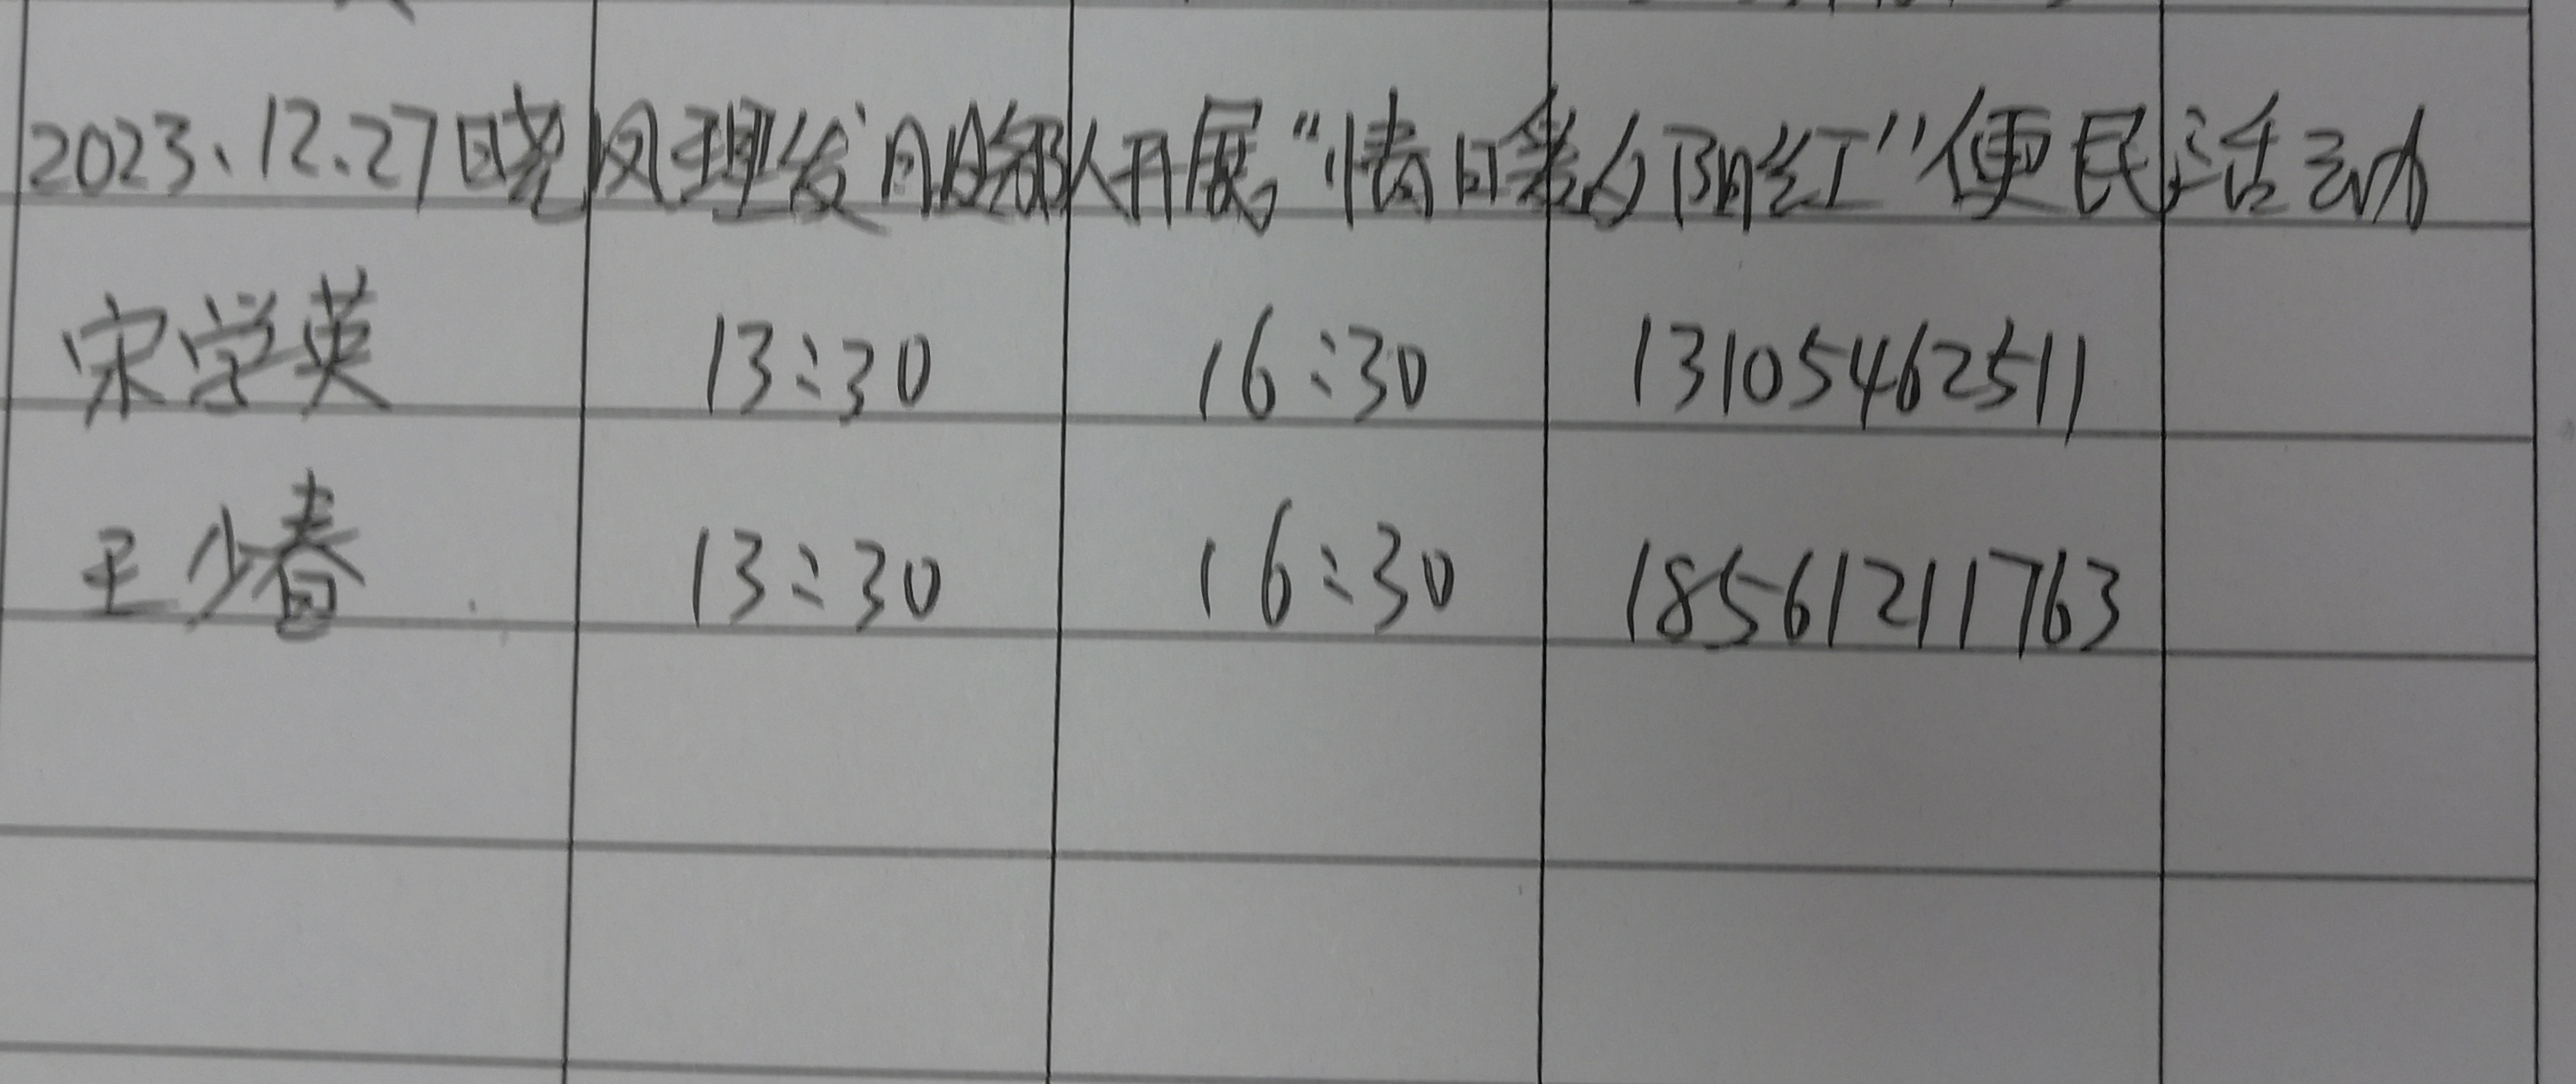 2023、12.27日晓风理发 开展“情暖夕阳红”便民活动
宋学英 13:30 16:30 13105462511
王少春 13:30 16:30 18561211763